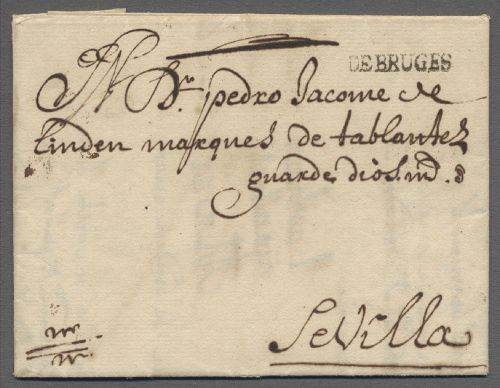 DE BRUGES
Al Sr. pedro Jacome de
linden marques de tablantes
guarde dios. m. s
Sevilla